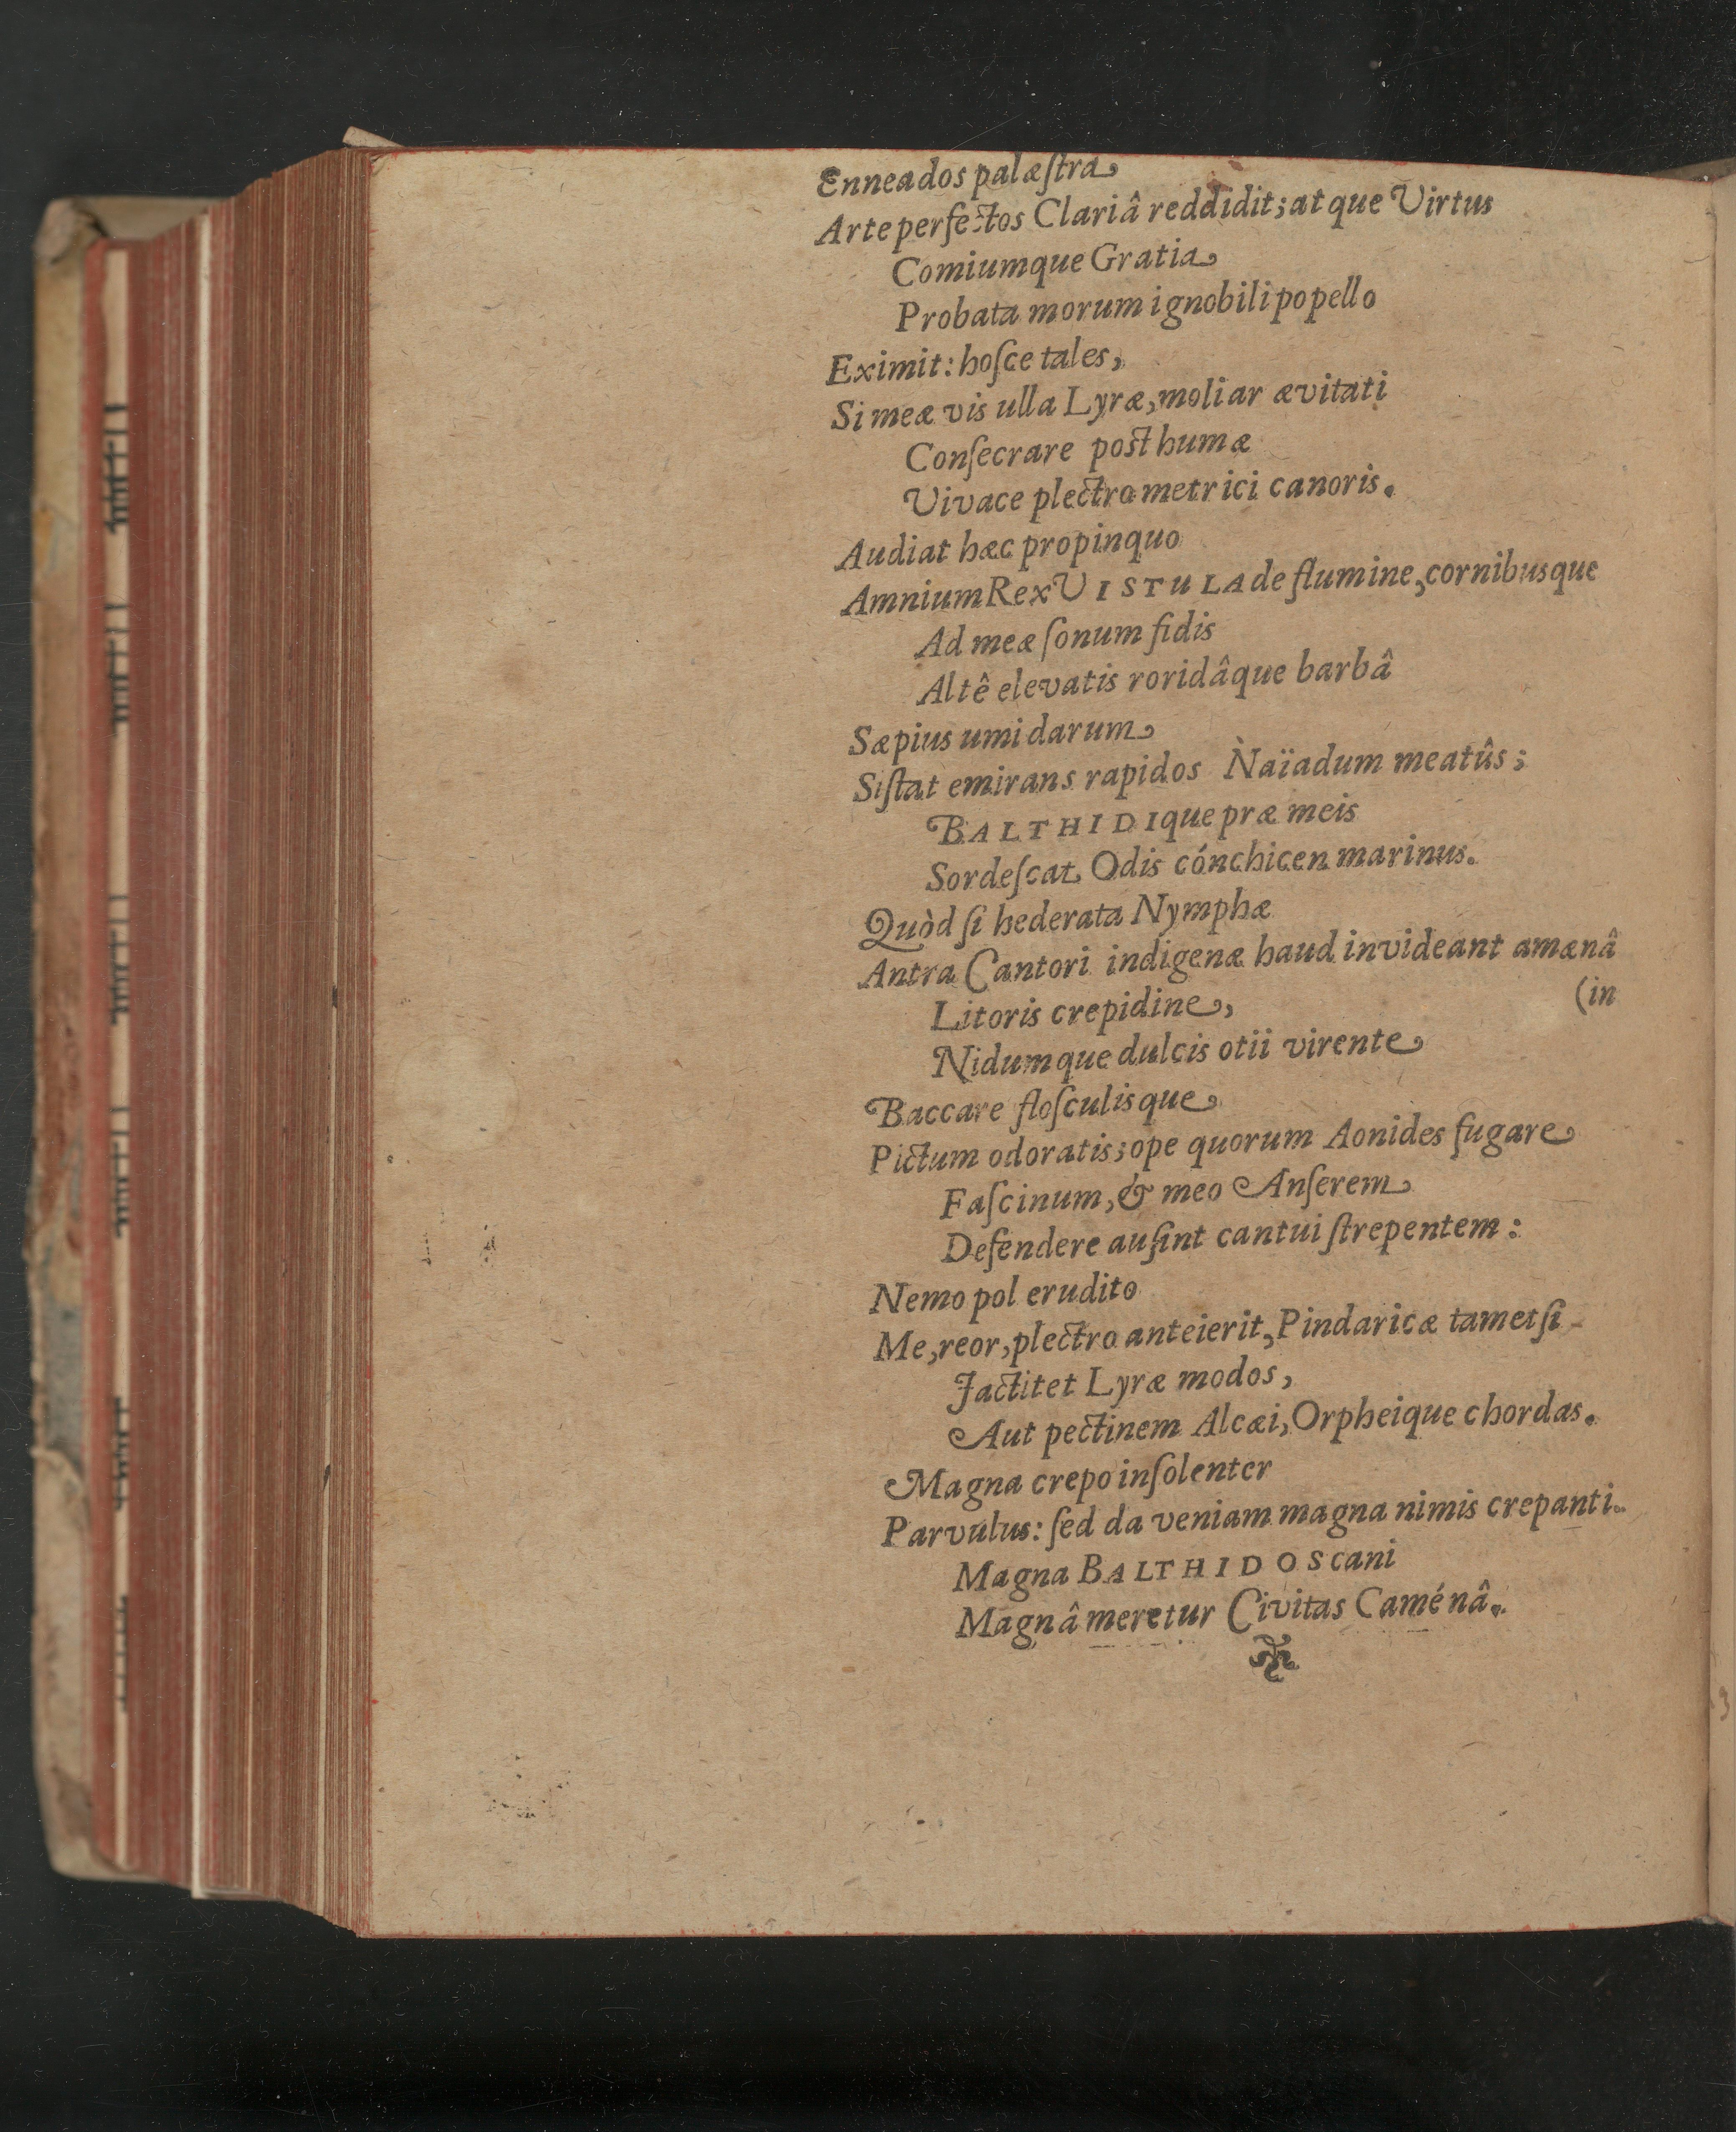 Enneados palæſtra
Arte perfectos Clariâ reddidit; atque Virtus
Comiumque Gratia
Probata morum ignobili popello
Eximit: hoſce tales,
Si meæ vis ulla Lyræ, moliar ævitati
Conſecrare posthumæ
Vivace plectro metrici canoris.
Audiat hæc propinquo
Amnium Rex VISTULA de flumine, cornibusque
Ad meæ ſonum fidis
Altê elevatis roridâque barbâ
Sæpius umidarum
Siſtat emirans rapidos Naïadum meatûs;
BALTHIDIque præ meis
Sordeſcat Odis cónchicen marinus.
Quòd ſi hederata Nymphæ
Antra Cantori indigenæ haud invideant amænâ
(in
Litoris crepidine,
Nidumque dulcis otii virente
Baccare floſculisque
Pictum odoratis; ope quorum Aonides fugare
Faſcinum, & meo Anſerem
Defendere auſint cantui ſtrepentem:
Nemo pol erudito
Me, reor, plectro anteierit, Pindaricæ tametſi
Jactitet Lyræ modos,
Aut pectinem Alcæi, Orpheique chordas.
Magna crepo inſolenter
Parvulus: ſed da veniam magna nimis crepanti.
Magna BALTHIDOS cani
Magnâ meretur Civitas Caménâ.